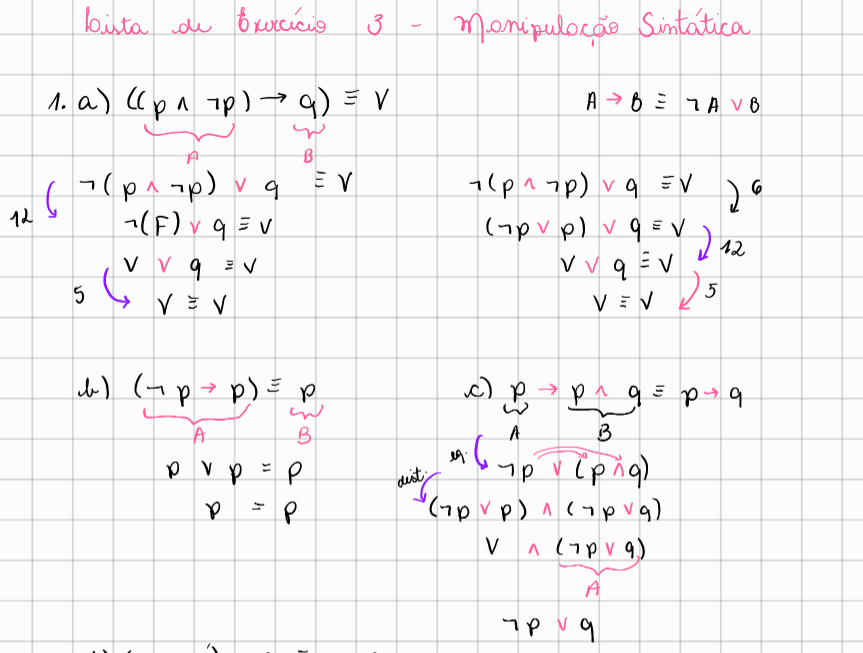 Lista de Exercício 3 - Manipulação Sintática
1. a) ((p ∧ ¬p) → q) ≡ V
A B
¬(p ∧ ¬p) ∨ q ≡ V
12
¬(F) ∨ q ≡ V
V ∨ q ≡ V
5
V ≡ V
A → B ≡ ¬A ∨ B
¬(p ∧ ¬p) ∨ q ≡ V
6
(¬p ∨ p) ∨ q ≡ V
12
V ∨ q ≡ V
5
V ≡ V
b) (¬p → p) ≡ p
A B
p ∨ p = p
p = p
c) p → p ∧ q ≡ p → q
A B
eq. ¬p ∨ (p ∧ q)
dist. (¬p ∨ p) ∧ (¬p ∨ q)
V ∧ (¬p ∨ q)
A
¬p ∨ q